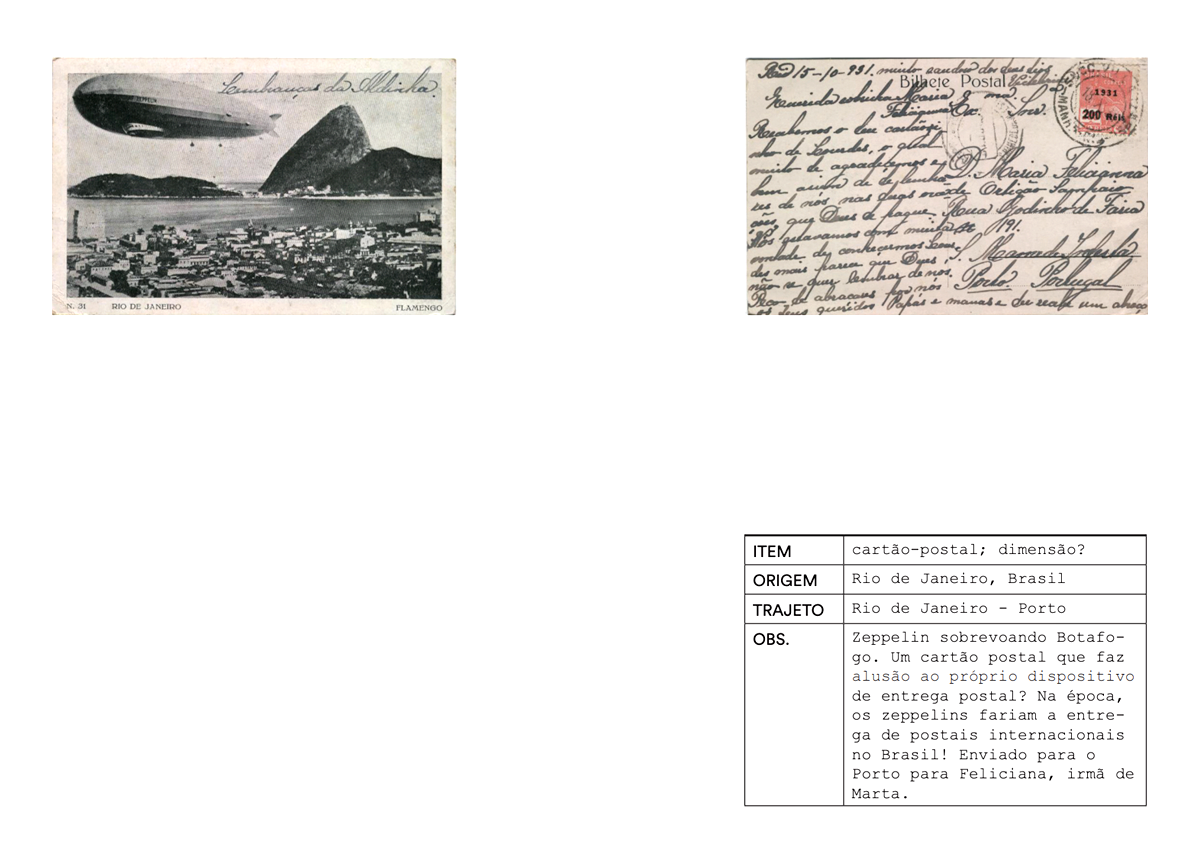 Lembranças da Aldinha.
ZEPPELIN
N. 31 RIO DE JANEIRO FLAMENGO
Rio 15-10-931, muito dos seus tios
Bilhete Postal
Querida sobrinha Maria
Feliciana
1931
200 Réis
Recebemos o seu cartãozi
nho de Lourdes, o qual
muito te agradecemos e
bem assim de te lembra
res de nós nas tuas oraç
ões, que Deus te pague.
Nós gostavamos com muita
vontade de conhecermos
des mas parece que Deus
não se quer lembrar de nós.
os seus queridos Papás e manas e tu recebe um abraço
D. Maria Feliciana
de Ortigão Sampaio
Rua Godinho de Faria
191.
S. Mamede Infesta
Porto Portugal
ITEM cartão-postal; dimensão?
ORIGEM Rio de Janeiro, Brasil
TRAJETO Rio de Janeiro - Porto
OBS. Zeppelin sobrevoando Botafo-
go. Um cartão postal que faz
alusão ao próprio dispositivo
de entrega postal? Na época,
os zeppelins fariam a entre-
ga de postais internacionais
no Brasil! Enviado para o
Porto para Feliciana, irmã de
Marta.